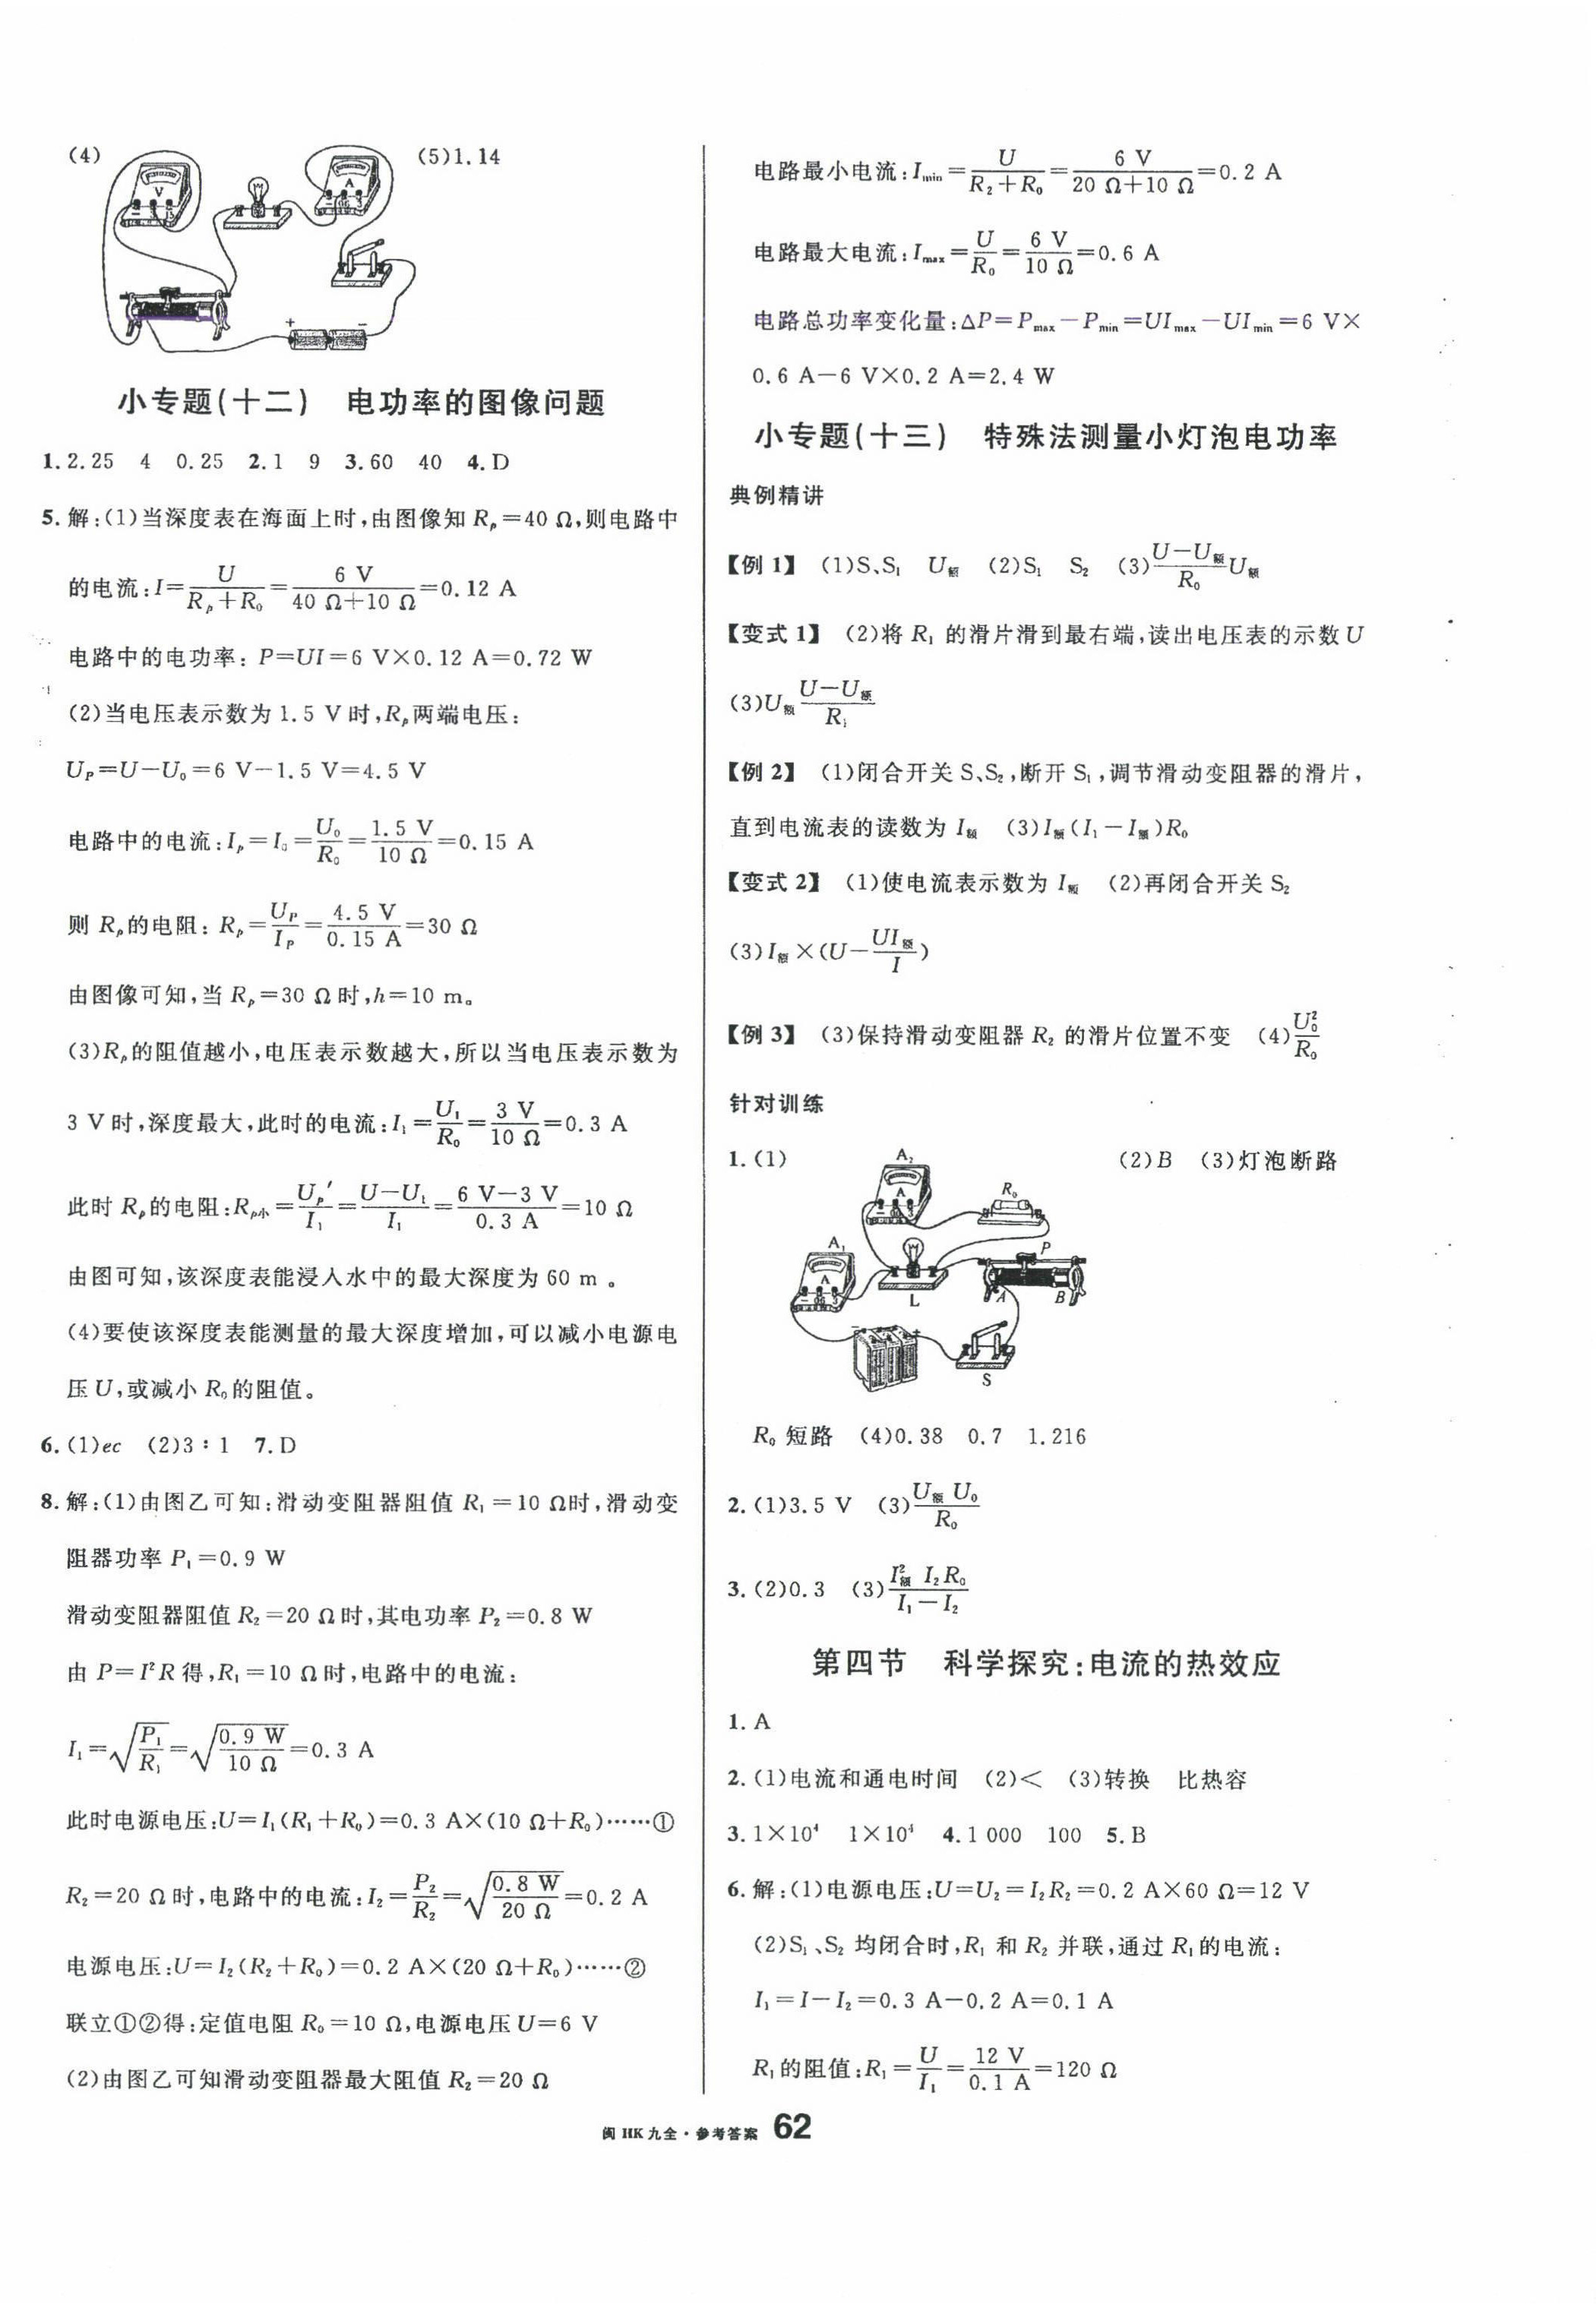 (4)
V
A
(5)1.14
+ −
小专题(十二) 电功率的图像问题
1. 2.25 4 0.25 2. 1 9 3. 60 40 4. D
5. 解:(1)当深度表在海面上时,由图像知 Rₚ=40 Ω,则电路中
的电流:I=U/(Rₚ+R₀)=6 V/(40 Ω+10 Ω)=0.12 A
电路中的电功率: P=UI=6 V×0.12 A=0.72 W
(2)当电压表示数为 1.5 V 时,Rₚ两端电压:
U_P=U−U₀=6 V−1.5 V=4.5 V
电路中的电流:Iₚ=I₀=U₀/R₀=1.5 V/10 Ω=0.15 A
则 Rₚ的电阻: Rₚ=U_P/I_P=4.5 V/0.15 A=30 Ω
由图像可知,当 Rₚ=30 Ω 时,h=10 m。
(3)Rₚ的阻值越小,电压表示数越大,所以当电压表示数为
3 V 时,深度最大,此时的电流:I₁=U₁/R₀=3 V/10 Ω=0.3 A
此时 Rₚ的电阻:Rₚ小=Uₚ′/I₁=(U−U₁)/I₁=(6 V−3 V)/0.3 A=10 Ω
由图可知,该深度表能浸入水中的最大深度为 60 m 。
(4)要使该深度表能测量的最大深度增加,可以减小电源电
压 U,或减小 R₀的阻值。
6. (1)ec (2)3∶1 7. D
8. 解:(1)由图乙可知:滑动变阻器阻值 R₁=10 Ω时,滑动变
阻器功率 P₁=0.9 W
滑动变阻器阻值 R₂=20 Ω 时,其电功率 P₂=0.8 W
由 P=I²R 得,R₁=10 Ω 时,电路中的电流:
I₁=√(P₁/R₁)=√(0.9 W/10 Ω)=0.3 A
此时电源电压:U=I₁(R₁+R₀)=0.3 A×(10 Ω+R₀)……①
R₂=20 Ω 时,电路中的电流:I₂=P₂/R₂=√(0.8 W/20 Ω)=0.2 A
电源电压:U=I₂(R₂+R₀)=0.2 A×(20 Ω+R₀)……②
联立①②得:定值电阻 R₀=10 Ω,电源电压 U=6 V
(2)由图乙可知滑动变阻器最大阻值 R₂=20 Ω
电路最小电流:I_min=U/(R₂+R₀)=6 V/(20 Ω+10 Ω)=0.2 A
电路最大电流:I_max=U/R₀=6 V/10 Ω=0.6 A
电路总功率变化量:ΔP=P_max−P_min=UI_max−UI_min=6 V×
0.6 A−6 V×0.2 A=2.4 W
小专题(十三) 特殊法测量小灯泡电功率
典例精讲
【例 1】 (1)S、S₁ U额 (2)S₁ S₂ (3)(U−U额)/R₀ U额
【变式 1】 (2)将 R₁ 的滑片滑到最右端,读出电压表的示数 U
(3)U额 (U−U额)/R₁
【例 2】 (1)闭合开关 S、S₂,断开 S₁,调节滑动变阻器的滑片,
直到电流表的读数为 I额 (3)I额(I₁−I额)R₀
【变式 2】 (1)使电流表示数为 I额 (2)再闭合开关 S₂
(3)I额×(U−UI额/I)
【例 3】 (3)保持滑动变阻器 R₂ 的滑片位置不变 (4)U₀²/R₀
针对训练
1. (1)
A₂
A
R₀
A₁
A
L
P
A B
− +
S
(2)B (3)灯泡断路
R₀ 短路 (4)0.38 0.7 1.216
2. (1)3.5 V (3)U额 U₀/R₀
3. (2)0.3 (3)I额² I₂R₀/(I₁−I₂)
第四节 科学探究:电流的热效应
1. A
2. (1)电流和通电时间 (2)< (3)转换 比热容
3. 1×10⁴ 1×10⁴ 4. 1 000 100 5. B
6. 解:(1)电源电压:U=U₂=I₂R₂=0.2 A×60 Ω=12 V
(2)S₁、S₂ 均闭合时,R₁ 和 R₂ 并联,通过 R₁的电流:
I₁=I−I₂=0.3 A−0.2 A=0.1 A
R₁的阻值:R₁=U/I₁=12 V/0.1 A=120 Ω
闽 HK 九全·参考答案 62